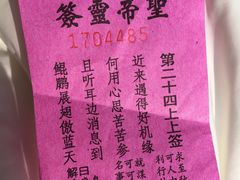 聖帝靈簽
1704485
第二十四上上签
近来遇得好机缘
何用心思苦苦参
且听耳边消息到
鲲鹏展翅傲蓝天
解曰